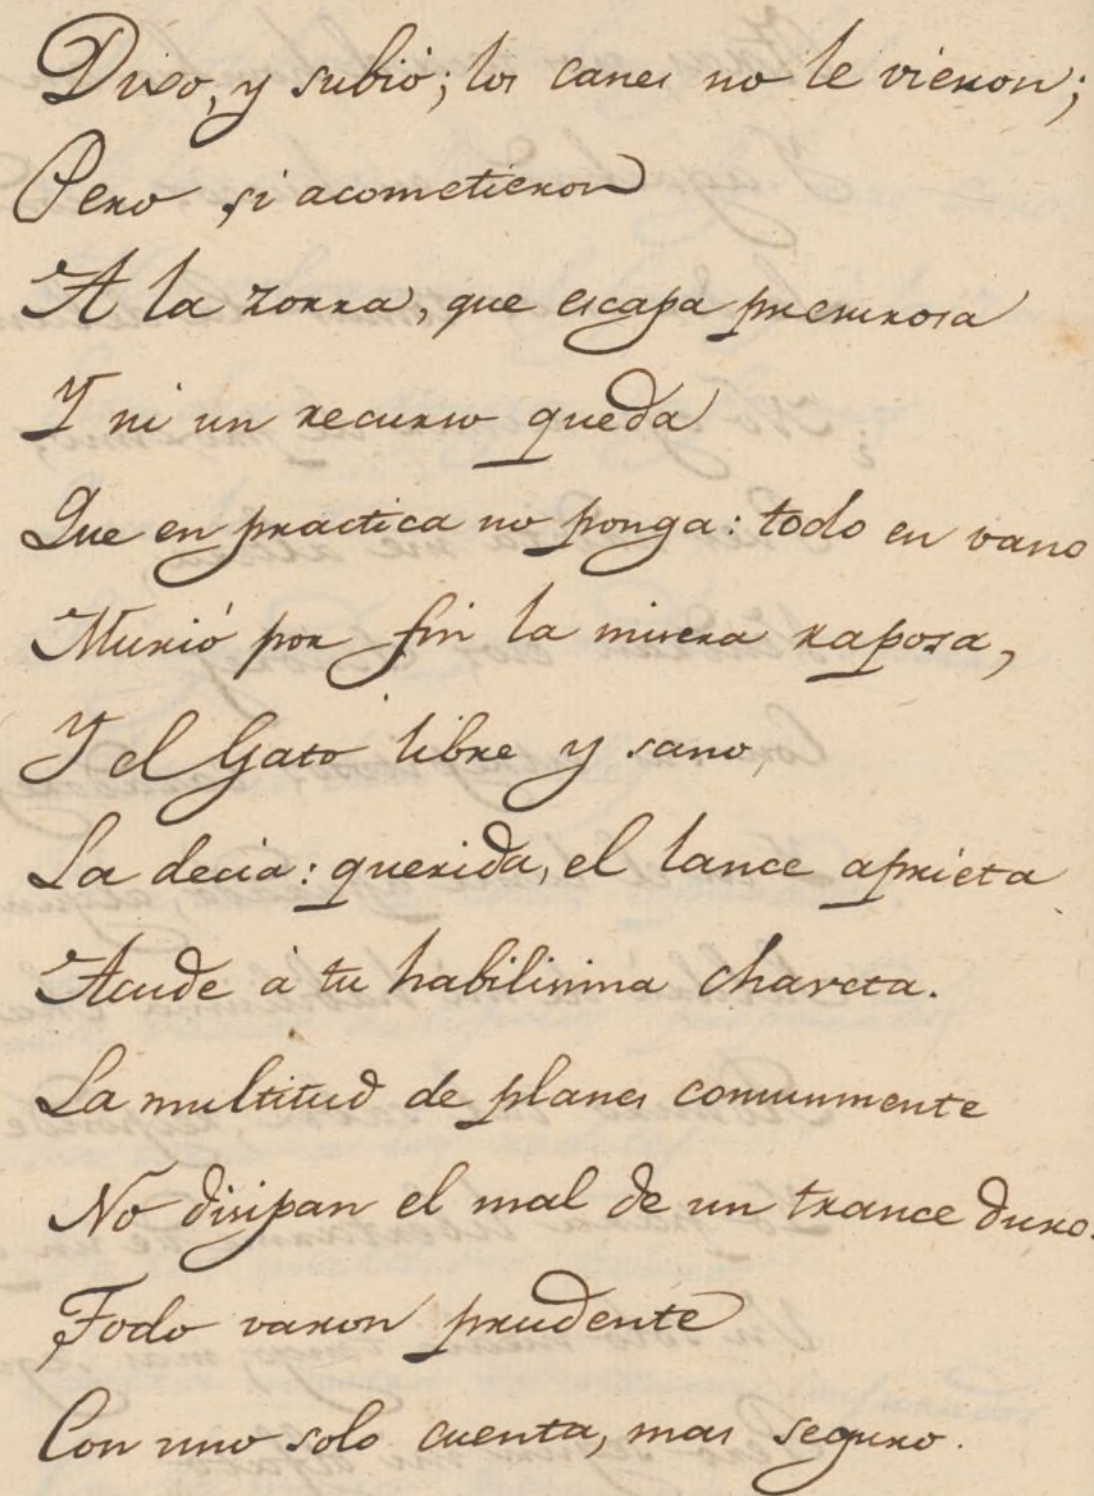 Dixo, y subió; los canes no le vieron;
Pero si acometieron
A la zorra, que escapa presurosa
Y ni un recurso queda
Que en practica no ponga: todo en vano
Murió por fin la misera raposa,
Y el Gato libre y sano,
La decia: querida, el lance aprieta
Acude à tu habilisima chaveta.
La multitud de planes comunmente
No disipan el mal de un trance duro.
Todo varon prudente
Con uno solo cuenta, mas seguro.